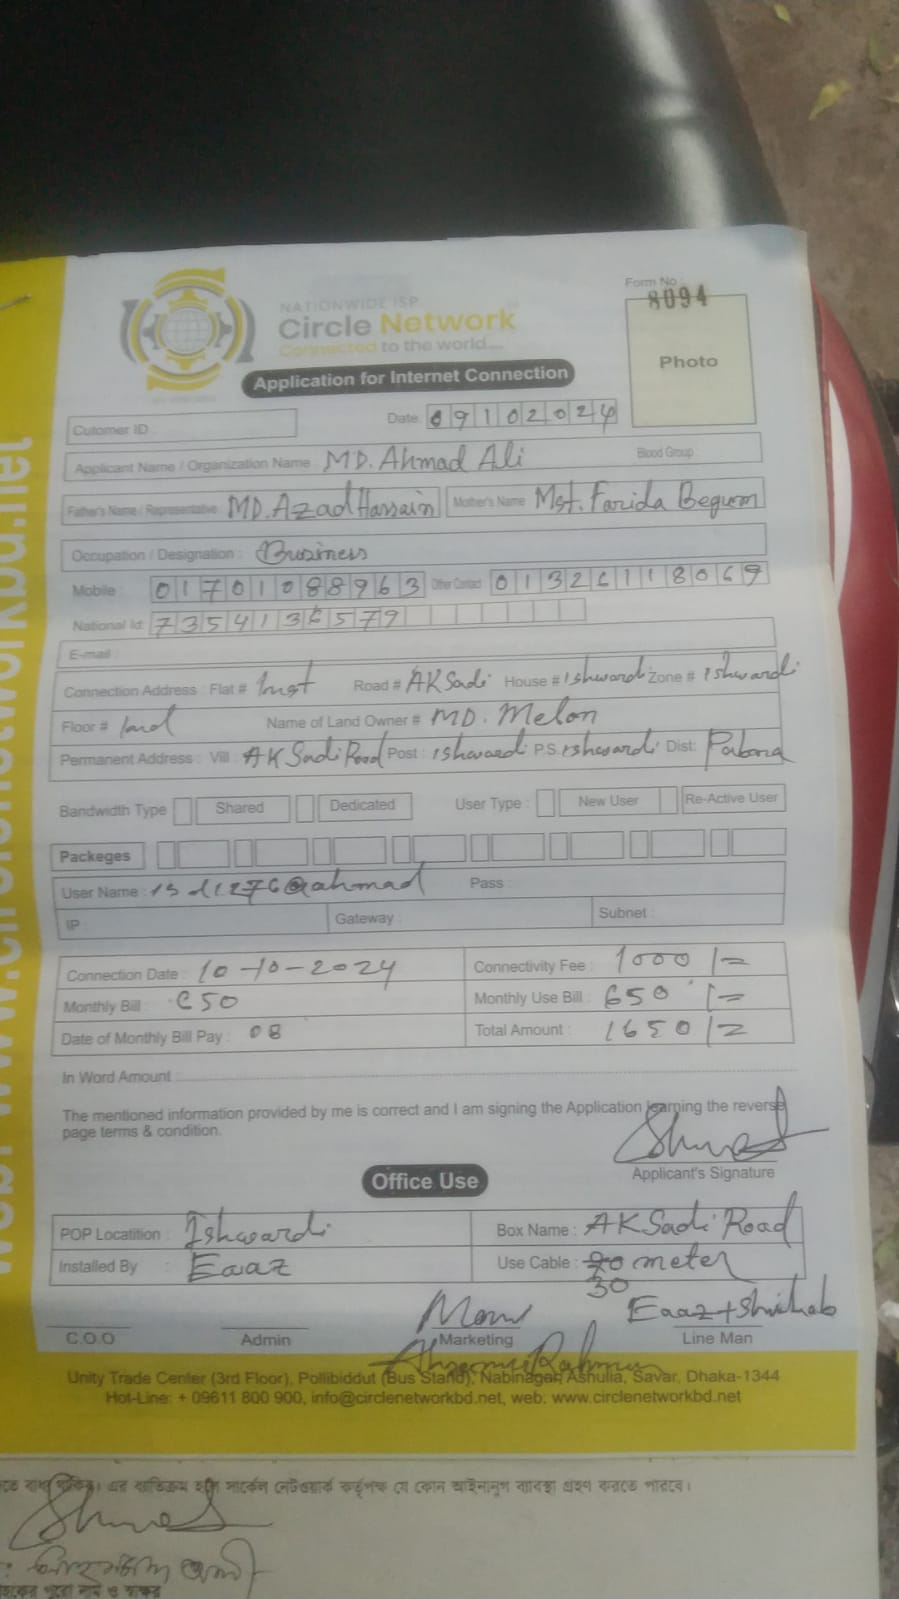 NATIONWIDE ISP
Circle Network
Connected to the world....
Form No :
8094
Photo
Application for Internet Connection
Cutomer ID :
Date: 09102024
Applicant Name / Organization Name : MD. Ahmad Ali Blood Group :
Father's Name / Representative : MD. Azad Hassain Mother's Name Mst. Farida Begum
Occupation / Designation : Business
Mobile : 01701088963 Other Contact : 01326118069
National Id:
E-mail :
Connection Address : Flat # Road # AK Sadi House # Ishwardi Zone # Ishwardi
Floor # Name of Land Owner # MD. Melon
Permanent Address : Vill : AK Sadi Road Post : Ishwardi P.S. Ishwardi Dist: Pabna
Bandwidth Type Shared Dedicated User Type : New User Re-Active User
Packeges
User Name : Pass :
IP : Gateway : Subnet :
Connection Date : 10-10-2024 Connectivity Fee : 1000/=
Monthly Bill : 650 Monthly Use Bill : 650/=
Date of Monthly Bill Pay : 08 Total Amount : 1650/=
In Word Amount :
The mentioned information provided by me is correct and I am signing the Application learning the reverse
page terms & condition.
Applicant's Signature
Office Use
POP Locatition : Ishwardi Box Name : AK Sadi Road
Installed By : Eaaz Use Cable : meter
30
Eaaz + Shihab
C.O.O Admin Marketing Line Man
Unity Trade Center (3rd Floor), Pollibiddut (Bus Stand), Nabinagar, Ashulia, Savar, Dhaka-1344
Hot-Line: + 09611 800 900, info@circlenetworkbd.net, web: www.circlenetworkbd.net
এর ব্যতিক্রম হলে সার্কেল নেটওয়ার্ক কর্তৃপক্ষ যে কোন আইনানুগ ব্যবস্থা গ্রহণ করতে পারবে।